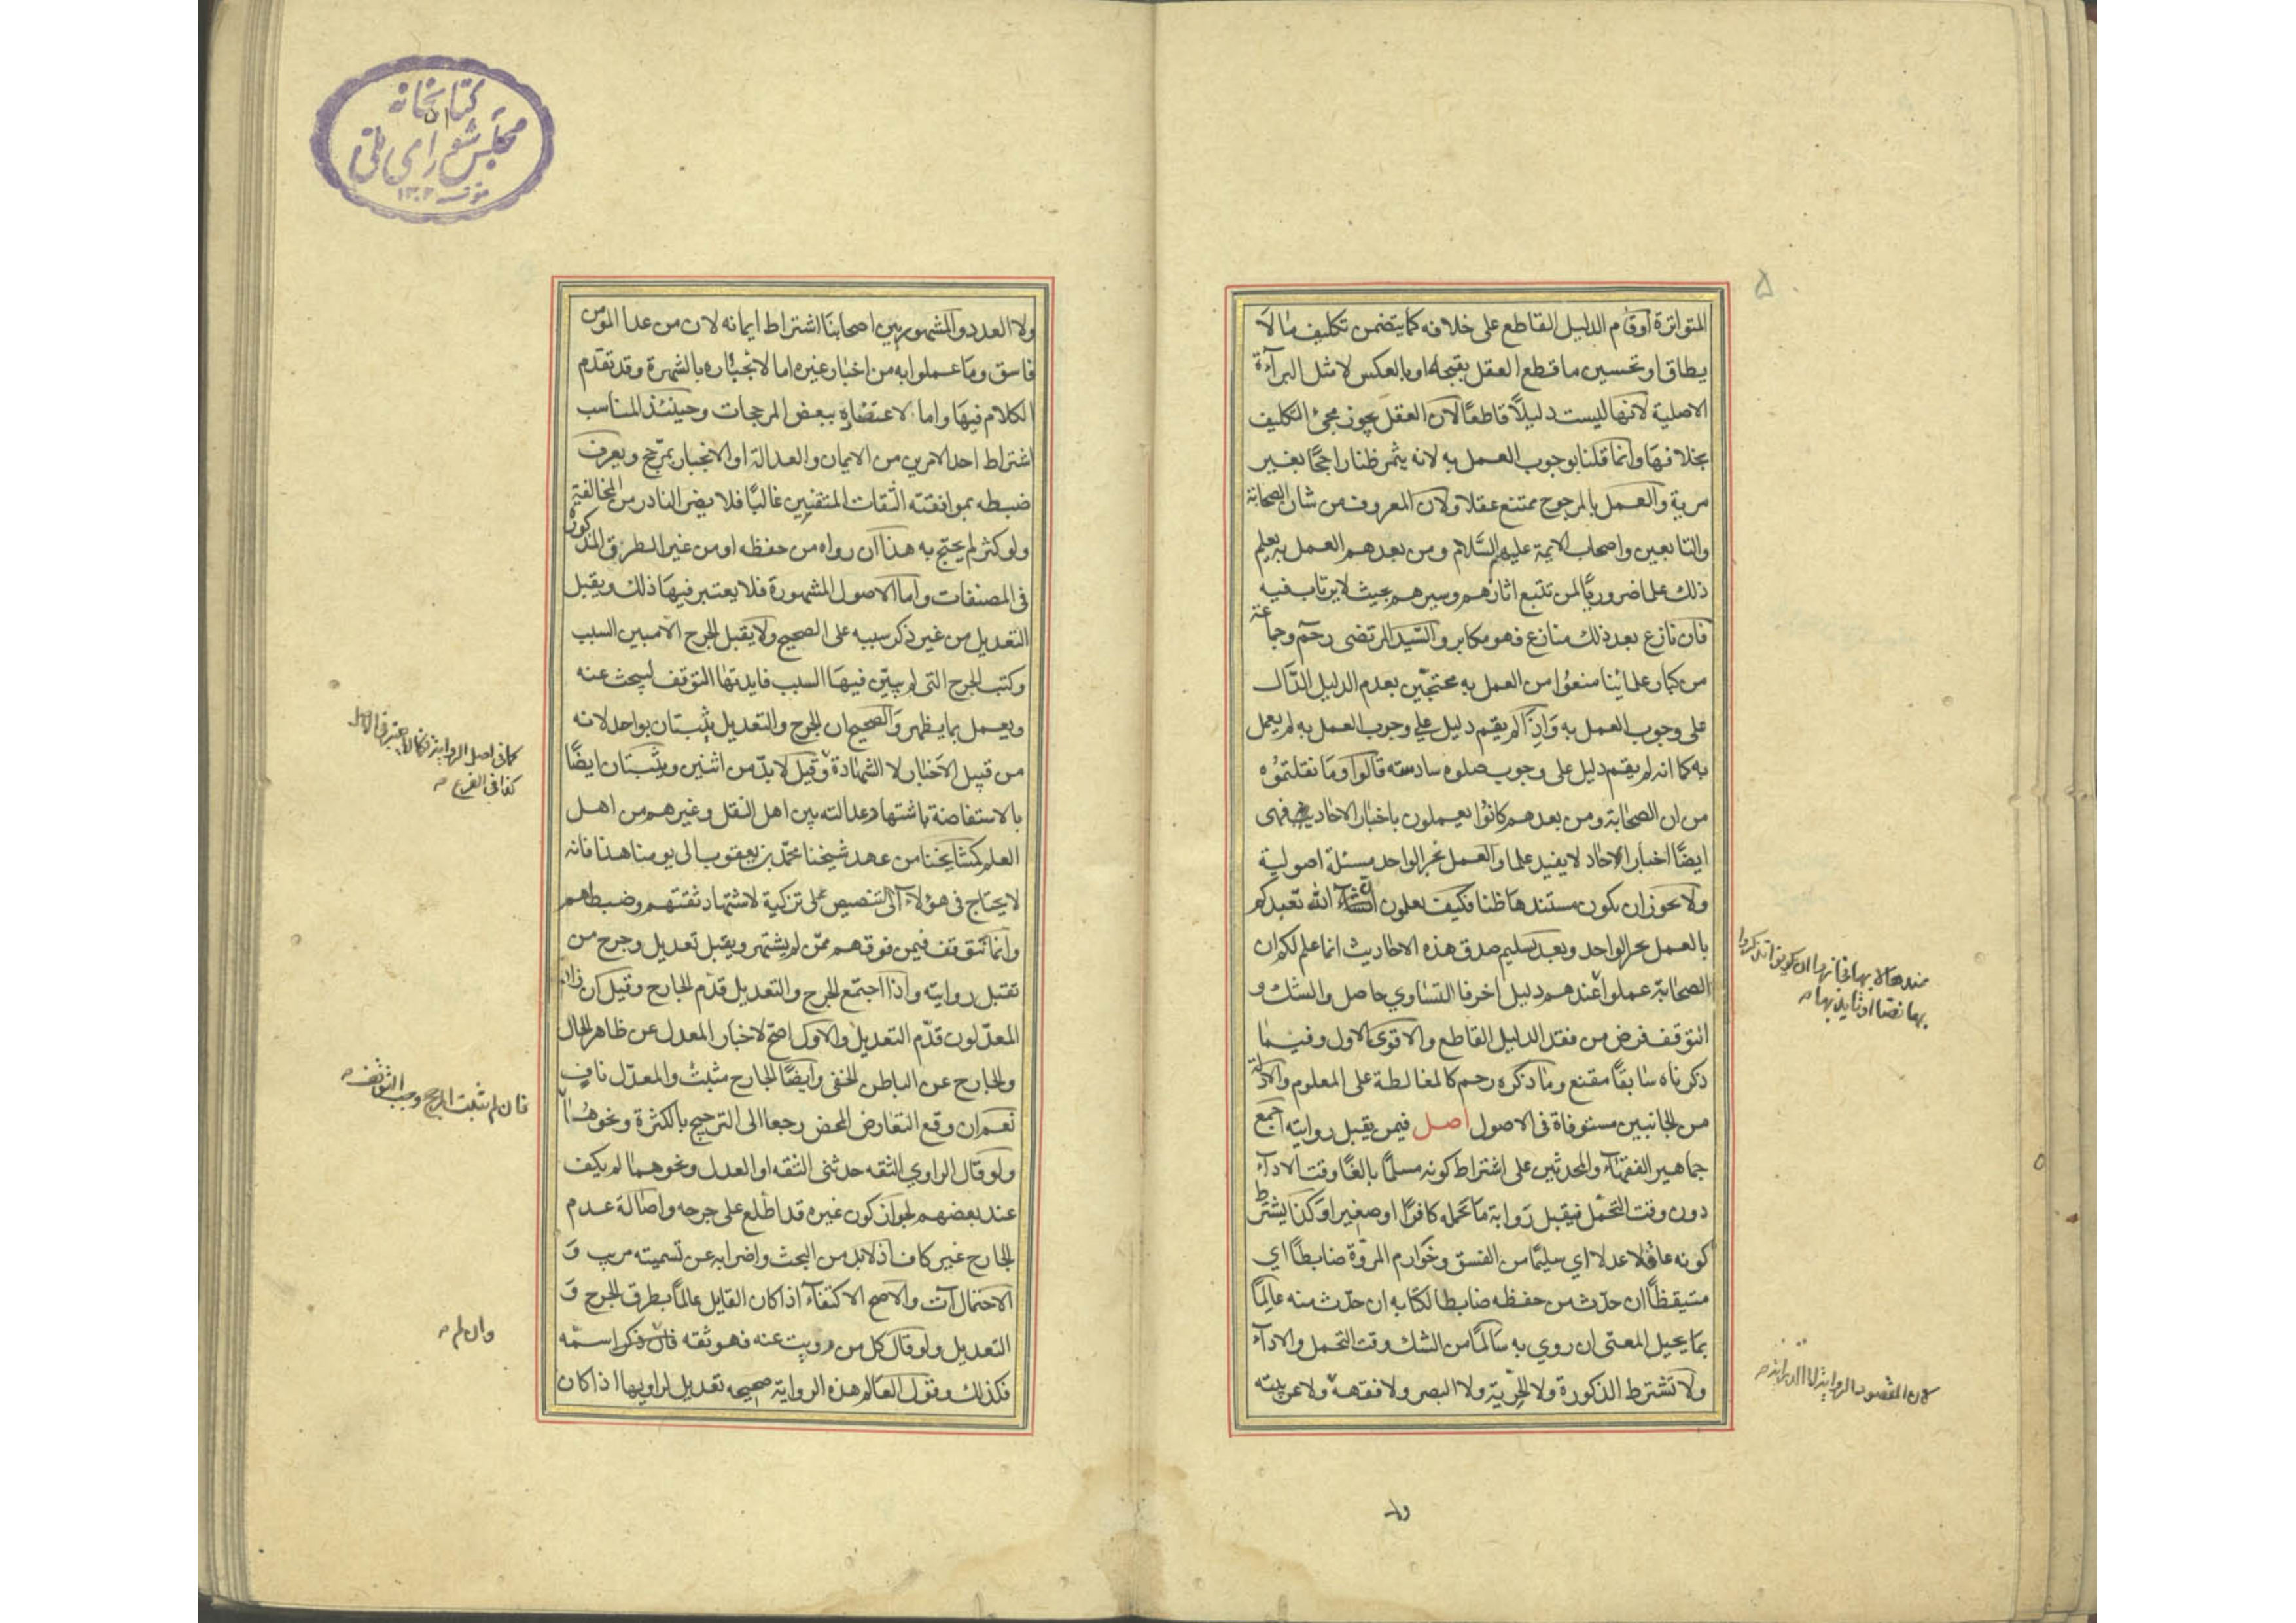 المتواترة او قام الدليل القاطع على خلافه كما يتضمن تكليف ما لا
يطاق او تحسين ما قطع العقل بقبحه او بالعكس لا مثل البرآءة
الاصلية لانها ليست دليلًا قاطعًا لان العقل يجوز مجئ التكليف
بخلافها وانما قلنا بوجوب العمل به لانه يثمر ظنا راجحًا بغير
مرية والعمل بالمرجوح ممتنع عقلا ولان المعروف من شان الصحابة
والتابعين واصحاب الايمة عليهم السَّلام ومن بعدهم العمل به يعلم
ذلك علما ضروريًا لمن تتبع اثارهم وسيرهم بحيث لا يرتاب فيه
فان نازع بعد ذلك منازع فهو مكابر والسّيد المرتضى رحم وجماعة
من كبار علمائنا منعوا من العمل به محتجّين بعدم الدليل الدّال
على وجوب العمل به وَاِذا لم يقم دليل علي وجوب العمل به لم يعمل
به كما انه لم يقم دليل على وجوب صلوه سادسته قالوا وَمَا نقلتموُه
من ان الصحابة ومن بعدهم كانُوا يعملون باخبار الاحاد فهى
ايضًا اخبار الاحاد لا يفيد علما والعمل بخبر الواحد مسئلة اصولية
ولا يحوز ان يكون مستندها ظنا فكيف يعلون ان شآء الله تعبدكم
بالعمل بحبر الواحد وبعد تسليم صدق هذه الاحاديث انما علم لكم ان
الصحابة عملوا عندهم دليل اخر فا التساوي حاصل والشك و
التوقف فرض من فقد الدليل القاطع والاقوى الاول وفيما
ذكرناه سَابقًا مقنع وما ذكره رحم كالمغالطة على المعلوم والادلة
من الجانبين مستوفاة فى الاصول اصل فيمن يقبل روايته اجمع
جماهير الفقهآء والمحدثين على اشتراط كونه مسلمًا بالغًا وقت الادآء
دون وقت التحمّل فيقبل رَوابة مَا تحمله كافرًا او صغيرا وَكذا يشترط
كونه عاقلا عدلا اي سليمًا من الفسق وخوارم المروّة ضابطًا اي
متيقظًا ان حدّث من حفظه ضابطا لكتابه ان حدّث منه عالِمًا
بما يحيل المعنى ان روي به سَالمًا من الشك وقت التحمل والادآء
ولا تشترط الذكورة ولا الحرّية ولا البصر ولا فقهه ولا عربيته
لان المقصود الرواية لا الدراية
ولا
ولا العدد والمشهور بين اصحابنا اشتراط ايمانه لان من عدا المؤمن
فاسق وما عملوا به من اخبار غيره اما لانجباره بالشهرة وقد تقدّم
الكلام فيها واما لاعتضاده ببعض المرجحات وحينئذ المناسب
اشتراط احد الامرين من الايمان والعدالة او الانجبار بمرّجح ويعرف
ضبطه بموافقته الثقات المتقنين غالبًا فلا يضر النادر من المخالفة
ولو كثر لم يحتج به هذا ان رواه من حفظه او من غير الطرق المذكورة
فى المصنفات واما الاصول المشهورة فلا يعتبر فيها ذلك ويقبل
التعديل من غير ذكر سببه على الصحيح ولا يقبل الجرح الا مبين السبب
وكتب الجرح التى لم يبيّن فيها السبب فايدتها التوقف ليبحث عنه
ويعمل بما يظهر وَالصحيح ان الجرح والتعديل يثبتان بواحد لانه
من قبيل الاخبار لا الشهادة وقيل لا بدّ من اثنين ويثبتان ايضًا
بالاستفاضة باشتهاد عدالته بين اهل النقل وغيرهم من اهل
العلم كمشايخنا من عهد شيخنا محمّد بن يعقوب الى يومنا هذا فانه
لا يحتاج فى هؤلآء الى التنصيص على تزكية لاشتهاد ثقتهم وضبطهم
وانما نتوقف فيمن فوقهم ممّن لم يشتهر ويقبل تعديل وجرح من
تقبل روايته واذا اجتمع الجرح والتعديل قدّم الجارح وقيل ان زاد
المعدّلون قدّم التعديل والاول اصحّ لاخبار المعدل عن ظاهر الحال
والجارح عن الباطن الخفى وايضًا الجارح مثبت والمعدّل نافٍ
نعم ان وقع التعارض المحض رجعا الى الترجيح بالكثرة ونحوها
ولو قال الراوي الثقه حدثنى الثقه او العدل ونحوهما لم يكف
عند بعضهم لجواز كون غيره قد اطّلع على جرحه واصالة عدم
الجارح غير كاف اذ لا بد من البحث واضرابه عن تسميته مريب وَ
الاحتمال آت والاصح الاكتفآء اذا كان القايل عالمًا بطرق الجرح وَ
التعديل ولو قال كل من رويت عنه فهو ثقه فان ذكر اسمه
فكذلك وقول العالم هذه الرواية صحيحه تعديل لراويها اذا كان
كما فى اصل الرواية
كذا فى الفرع
فان لم يثبت الجرح وجب التوقف
وان لم
كتابخانه
مجلس شورای ملی
۱۳۰۲
۵